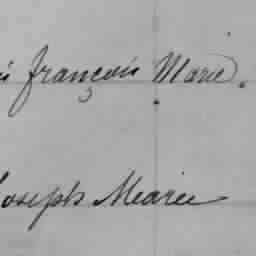 françois Marie.
Joseph Marie